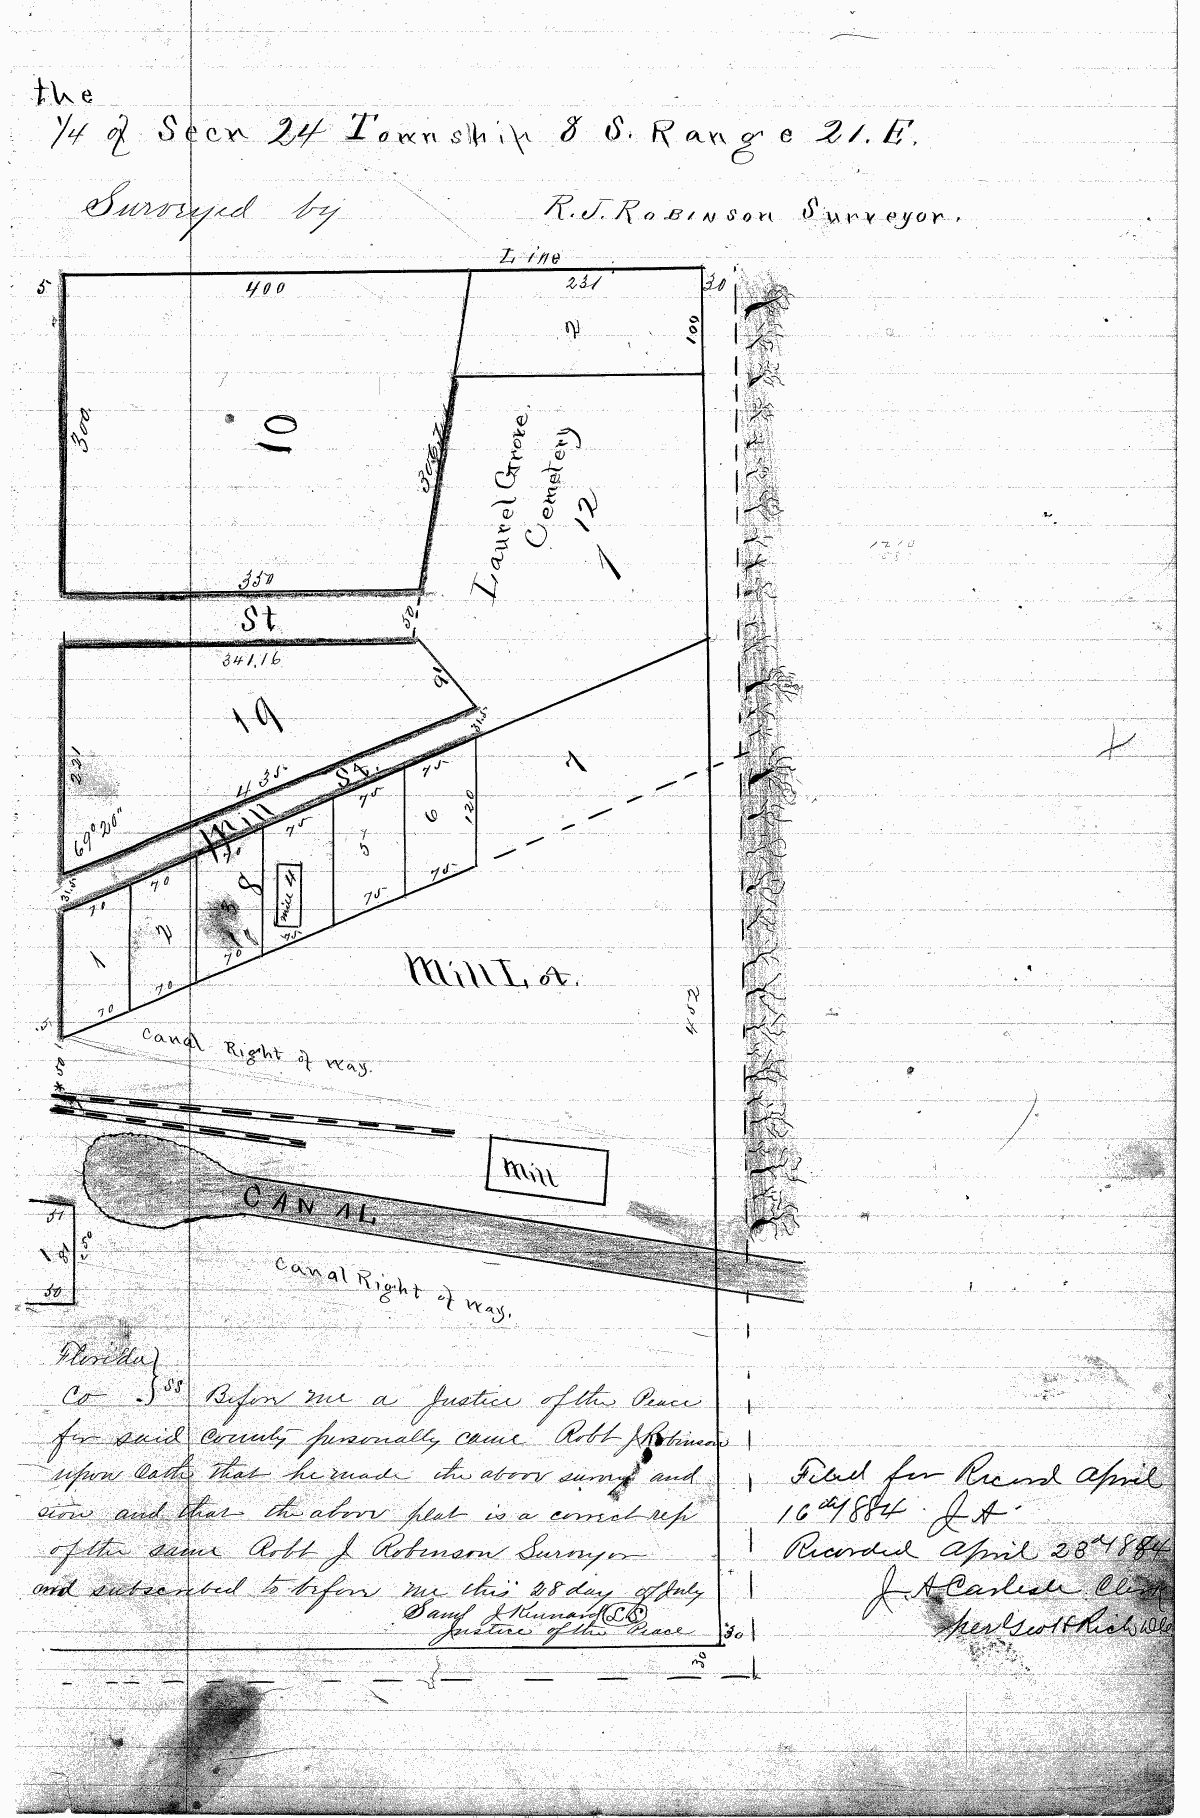 the
1/4 of Secn 24 Township 8 S. Range 21. E.
Surveyed by R. J. ROBINSON Surveyor.
Line
5 400 231 30
2
100
300
10
Laurel Grove
Cemetery
12
1
350
50
St
341.16
91
19
221
435.
31.5
Mill St.
69° 20"
7
75
75
75
70
6
120
5
31.5
70
70
8
3
Mill 4
2
1
75
75
75
70
70
70
Mill Lot.
452
Canal Right of way.
50
Mill
CANAL
51
1
50
50
Canal Right of way.
Florida
Co SS Before me a Justice of the Peace
for said county personally came Robt J Robinson
upon Oath that he made the above survey and
sion and that the above plat is a correct rep
of the same Robt J Robinson Surveyor
and subscribed to before me this 28 day of July
Saml J Kennard (LS)
Justice of the Peace
30
30
Filed for Record April
16th 1884. J A
Recorded April 23d 1884
J. A Carlisle Clerk
per